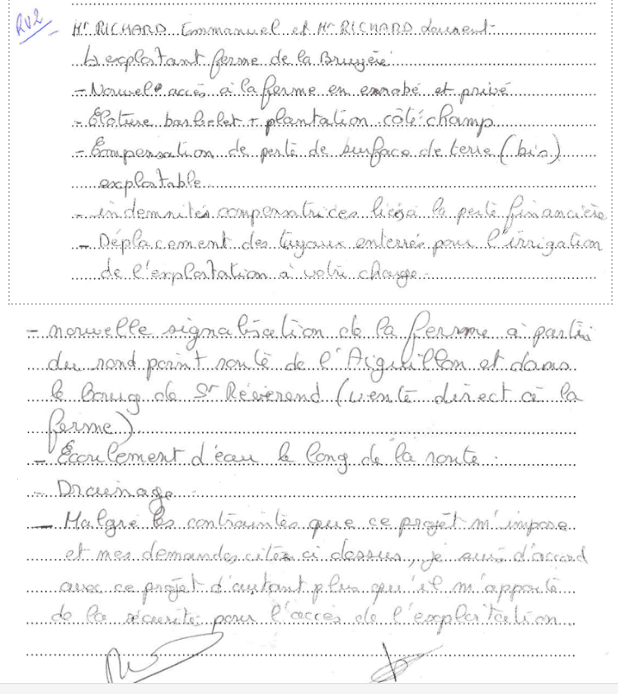 RV2
Mr RICHARD Emmanuel et Mr RICHARD Laurent
exploitant ferme de la Bruyère
- Nouvel accès à la ferme en enrobé et privé
- Cloture barbelet + plantation côté champ
- Compensation de perte de surface de terre (bio)
exploitable
- indemnités compensatrices liés à la perte financière
- Déplacement des tuyaux enterrés pour l'irrigation
de l'exploitation à votre charge
- nouvelle signalisation de la ferme à partir
du rond point route de l'Aiguillon et dans
le Bourg de St Révérend (vente direct à la
ferme)
- Écoulement d'eau le long de la route.
- Drainage
- Malgré les contraintes que ce projet m'impose
et mes demandes citez ci dessus, je suis d'accord
avec ce projet d'autant plus qu'il m'apporte
de la sécurité pour l'accès de l'exploitation